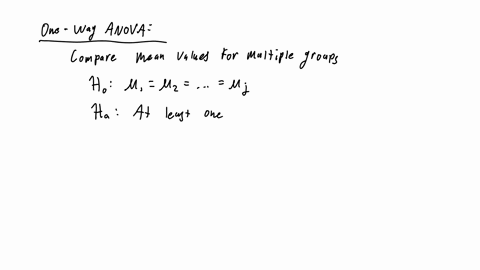 One-Way ANOVA:
Compare mean values for multiple groups
H₀: μ₁ = μ₂ = ... = μⱼ
Hₐ: At least one